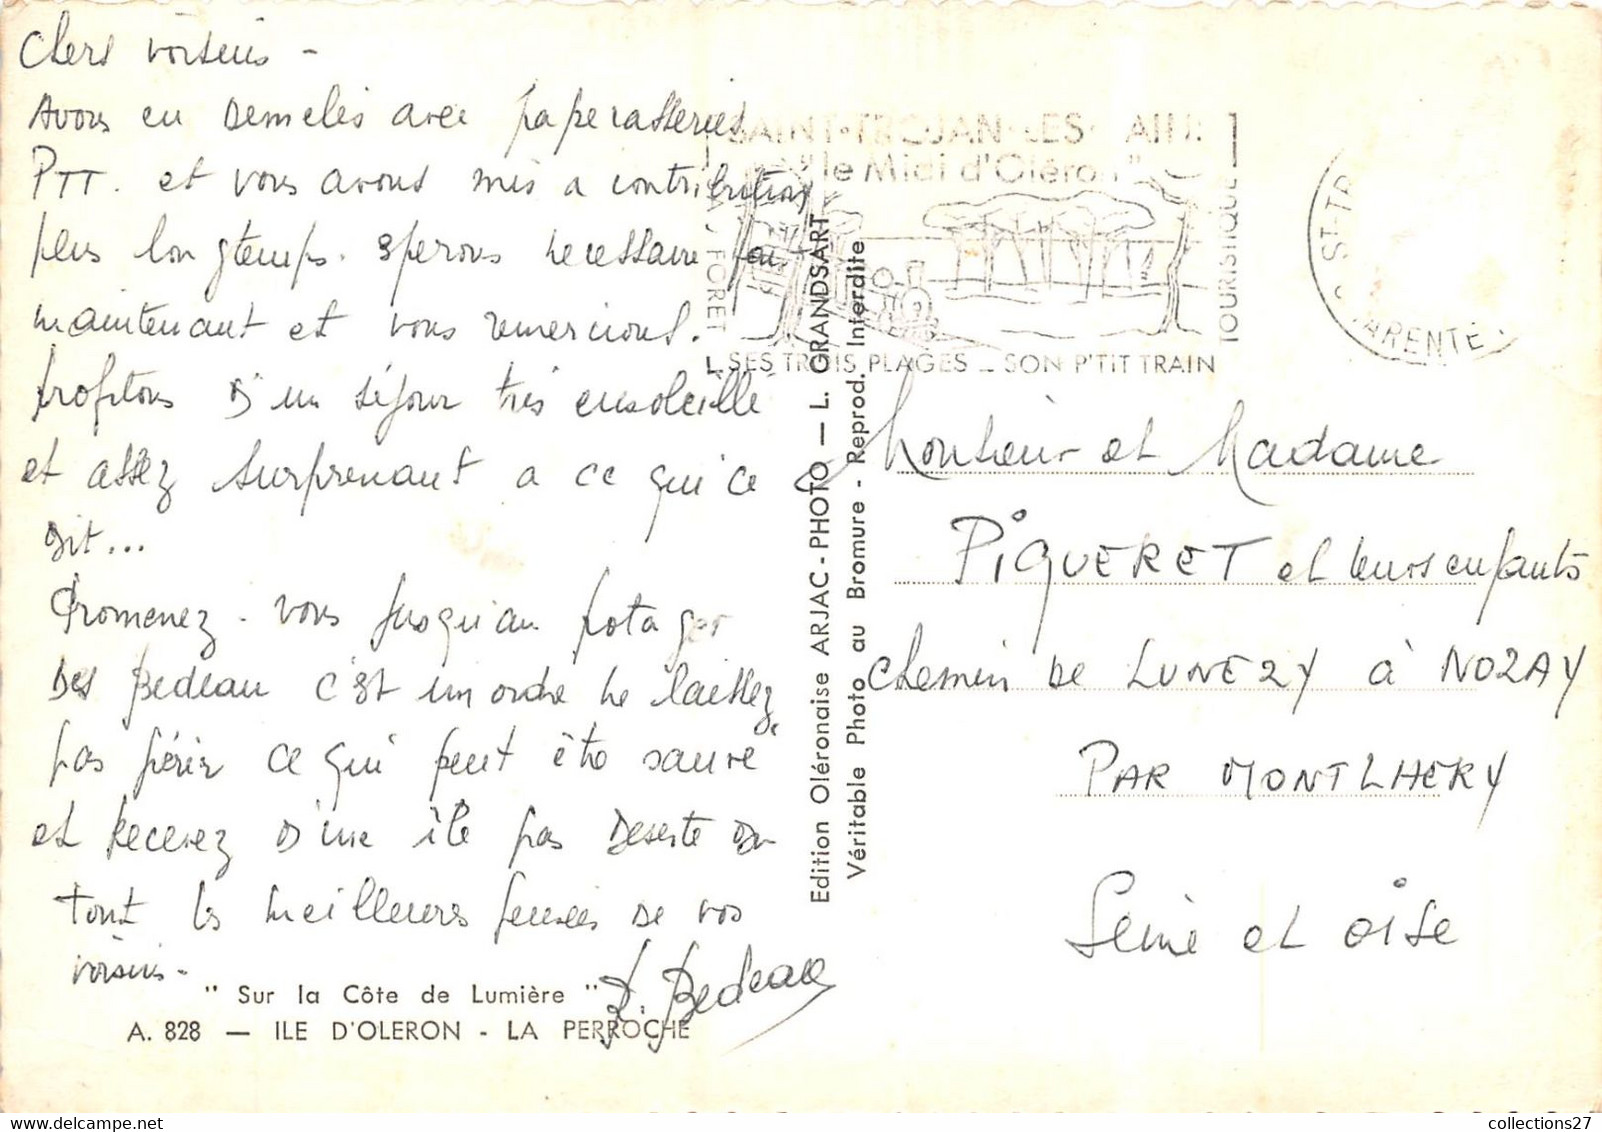 Chers voisins -
Avons eu Demelés avec paperasseries
PTT. et vous avons mis a contribution
plus longtemps. sperons necessaire
maintenant et vous remercions.
profitons D'un séjour très ensoleillé
et assez surprenant a ce qui ce
dit...
Promenez-vous jusqu'au potager
Des Bedeau c'est un ordre ne laissez
pas périr ce qui peut être sauvé
et Recevez D'une île pas Deserte Du
tout les meilleures pensées De vos
voisins-
D. Bedeau
" Sur la Côte de Lumière "
A. 828 — ILE D'OLERON - LA PERROCHE
Edition Oléronaise ARJAC - PHOTO — L. GRANDSART
Véritable Photo au Bromure - Reprod. Interdite
SAINT-TROJAN-LES-
"le Midi d'Oléron"
FORET
TOURISTIQUE
SES TROIS PLAGES _ SON P'TIT TRAIN
ST-TR
CHARENTE
Monsieur et Madame
PIQUERET et leurs enfants
chemin DE LUNEZY à NOZAY
PAR MONTLHERY
Seine et oise
collections27